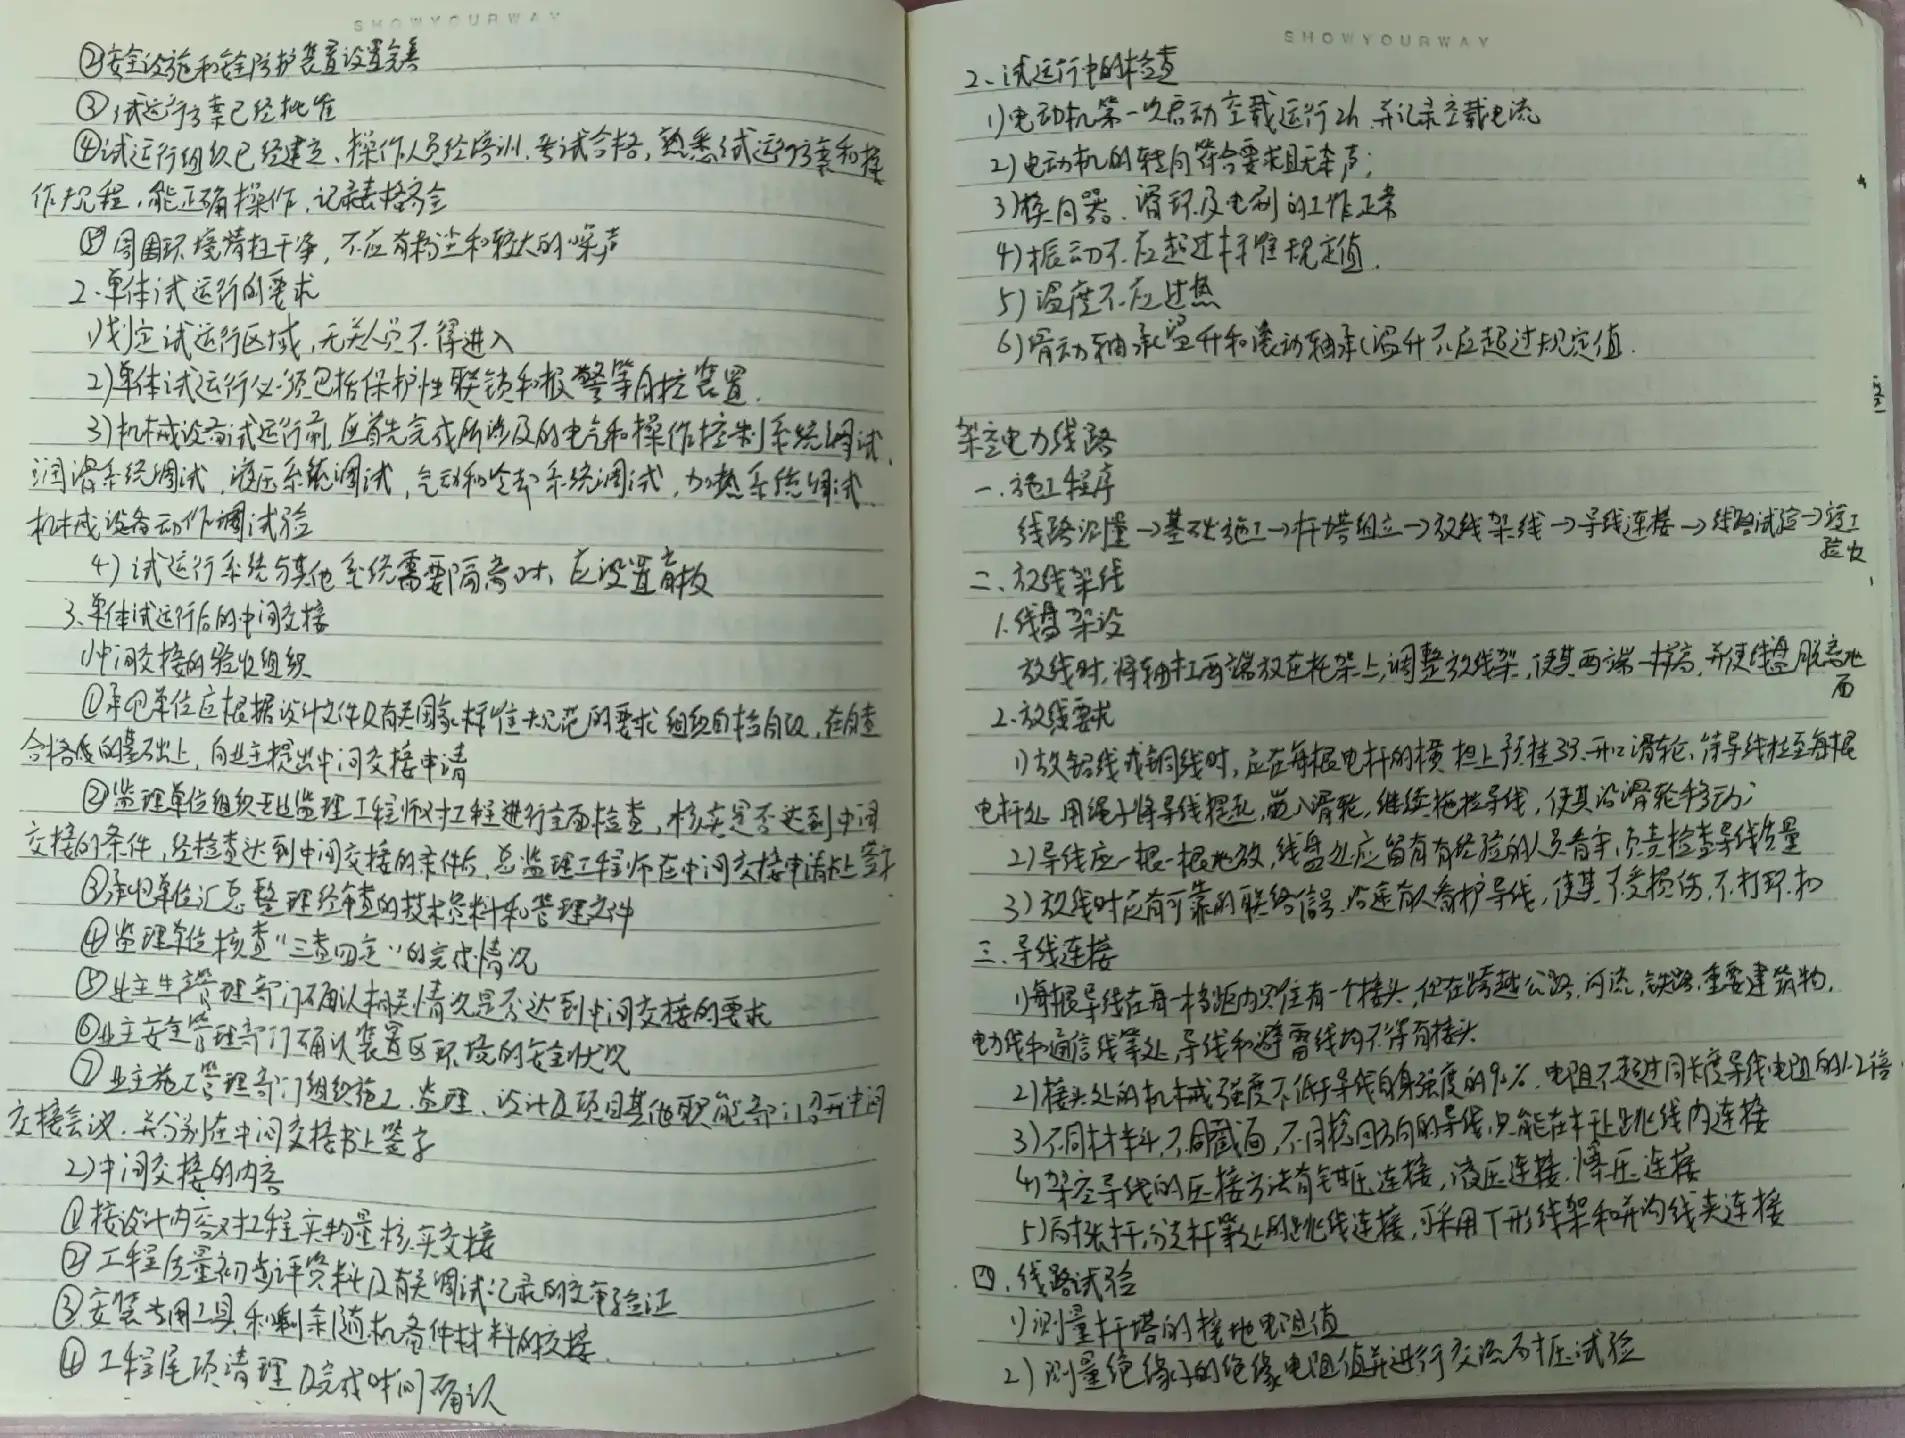 SHOWYOURWAY
②安全设施和安全防护装置设置完善
③试运行方案已经批准
④试运行组织已经建立、操作人员经培训、考试合格，熟悉试运行方案和操
作规程，能正确操作，记录表格齐全
⑤周围环境清扫干净，不应有粉尘和较大的噪声
2.单体试运行的要求
1)划定试运行区域，无关人员不得进入
2)单体试运行必须包括保护性联锁和报警等自控装置.
3)机械设备试运行前，应首先完成所涉及的电气和操作控制系统调试、
润滑系统调试，液压系统调试，气动和冷却系统调试，加热系统调试
机械设备动作调试验
4)试运行系统与其他系统需要隔离时、应设置盲板
3.单体试运行后的中间交接
1)中间交接的验收组织
①承包单位应根据设计文件及有关国家标准规范的要求组织自检自改，在自查
合格后的基础上，向业主提出中间交接申请
②监理单位组织专业监理工程师对工程进行全面检查，核实是否达到中间
交接的条件，经检查达到中间交接的条件后，总监理工程师在中间交接申请书上签字
③承包单位汇总整理经审查的技术资料和管理文件
④监理单位核查“三查四定”的完成情况
⑤业主生产管理部门确认相关情况是否达到中间交接的要求
⑥业主安全管理部门确认装置区环境的安全状况
⑦业主施工管理部门组织施工、监理、设计及项目其他职能部门召开中间
交接会议、并分别在中间交接书上签字
2)中间交接的内容
①按设计内容对工程实物量核实交接
②工程质量初步评资料及有关调试记录的交审验证
③安装专用工具和剩余随机备件材料的交接
④工程尾项清理及完成时间确认
SHOWYOURWAY
2、试运行中的检查
1)电动机第一次启动空载运行2h，并记录空载电流
2)电动机的转向符合要求且无杂声；
3)换向器、滑环及电刷的工作正常
4)振动不应超过标准规定值.
5)温度不应过热
6)滑动轴承温升和滚动轴承温升不应超过规定值.
架空电力线路
一.施工程序
线路测量→基础施工→杆塔组立→放线架线→导线连接→线路试验→竣工
验收
二、放线架线
1.线盘架设
放线时，将轴杠两端放在托架上，调整放线架，使其两端一样高，并使线盘脱离地
面
2.放线要求
1)放铝线或铜线时，应在每根电杆的横担上预挂开口滑轮，待导线拉至每根
电杆处，用绳子将导线提起，嵌入滑轮，继续拖拉导线，使其沿滑轮移动；
2)导线应一根一根地放，线盘处应留有有经验的人员看守，负责检查导线质量
3)放线时应有可靠的联络信号，沿途有人看护导线，使其不受损伤、不打环扣
三.导线连接
1)每根导线在每一档距内只准有一个接头，但在跨越公路，河流，铁路，重要建筑物，
电力线和通信线等处，导线和避雷线均不得有接头
2)接头处的机械强度不低于导线自身强度的90%，电阻不超过同长度导线电阻的1.2倍
3)不同材料、不同截面，不同捻回方向的导线，只能在杆上跳线内连接
4)架空导线的压接方法有钳压连接，液压连接，爆压连接
5)耐张杆，分支杆等处的跳线连接，可采用T形线架和并沟线夹连接
四.线路试验
1)测量杆塔的接地电阻值
2)测量绝缘子的绝缘电阻值并进行交流耐压试验